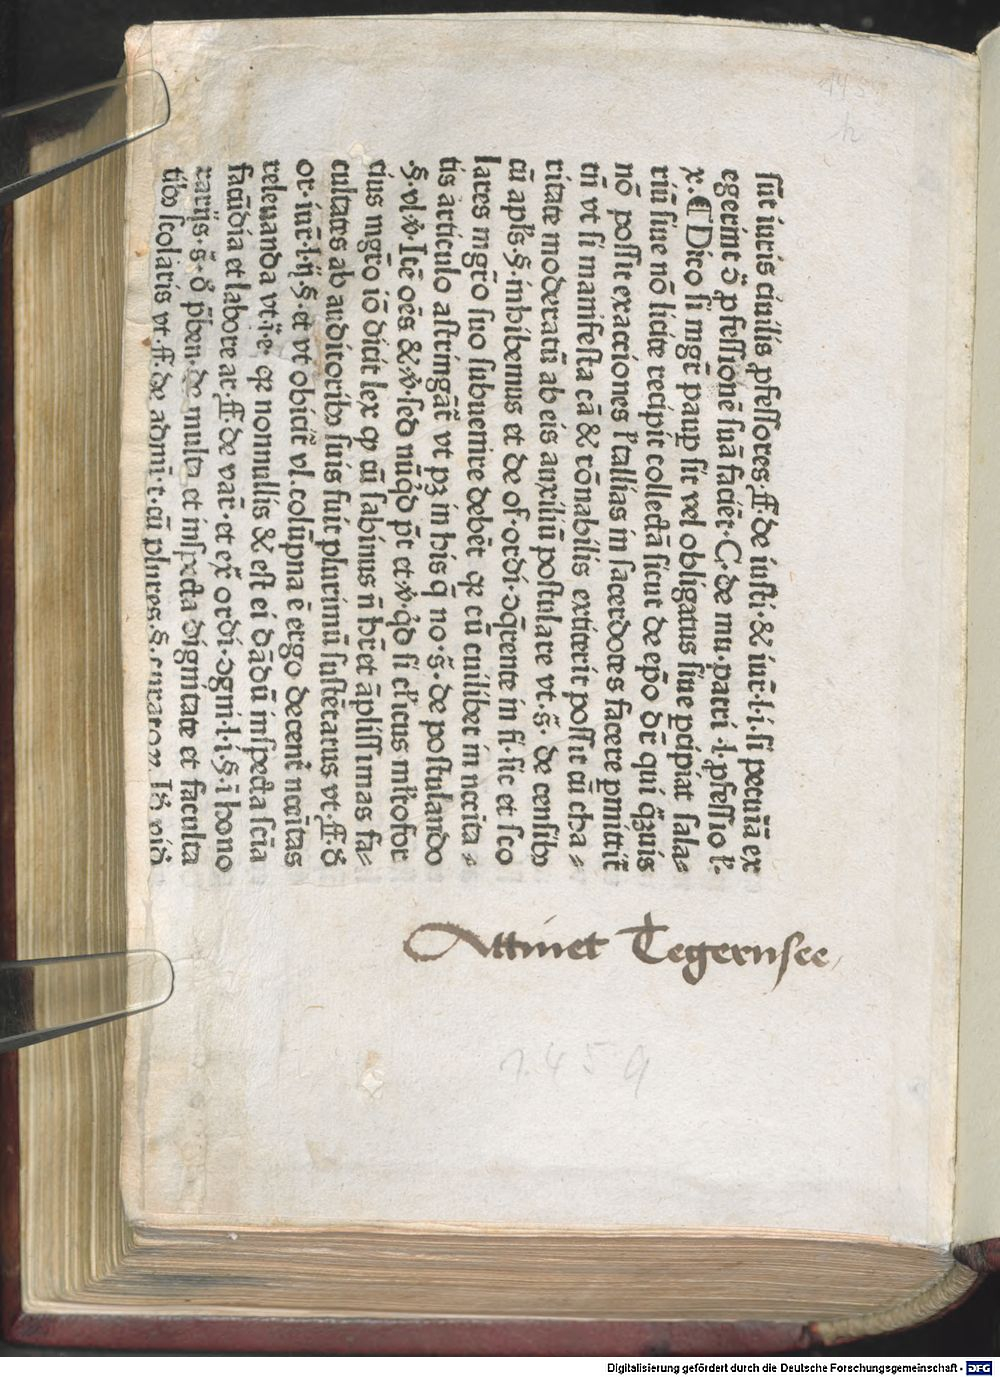 sūt iuris ciuilis ꝓfessores.ff.de iusti.& iur̄.l.i.si pecuīa ex
egerint ꝺ̄ ꝓfessionē suā faciēt.C.de mu.patri.l.ꝓfessio l'.
x.¶Dico si mgr̄ paup̱ sit vel obligatus siue p̱cipiat sala⸗
riū siue nō licite recipit collectā sicut de ep̄o dr̄ qui q̄ꝫuis
nō possit exacciones l' tallias in sacerdotes facere p̱mittit̄
tn̄ vt si manifesta cā & rōnabilis extiterit possit cū cha⸗
ritate moderatū ab eis auxiliū postulare vt.s̄.de censibꝫ
cū apl's.§.ꝓhibemus et de of.ordi.ꝯq̄rente in fi.sic et sco
lares mgr̄o suo subuenire debēt qꝛ cū cuilibet in nccīta⸗
tis articulo astringāt̄ vt pꝫ in his q̄ no.s̄.de postulando
§.vl.ꝟ.Itē oēs &.ꝟ.sed nūqͥd pt̄ et.ꝟ.qͥd si cl'icus
cius mgr̄o iō dicit lex ꝙ cū sabinus n̄ hr̄et āplissimas fa⸗
cultates ab auditoribꝫ suis fuit plurimū sustētatus vt.ff.ꝺ
or.iur̄.l.ij.§.et vt obicit̄ vl.colūpna ē ergo decent̄ nccītas
releuanda vt.i.e. qꝛ nonnullis & est ei dādū inspecta scīa
facūdia et labore ar.ff.de var̄.et ex̄ ordi.ꝯgni.l.i.§.ī hono
rarijs.s̄.ꝺ p̄ben.de multa et inspecta dignitate et faculta
tibꝫ scolaris vt.ff.de admī.t.cū plures.§.curator.
Attinet Tegernsee
1459
Digitalisierung gefördert durch die Deutsche Forschungsgemeinschaft - DFG